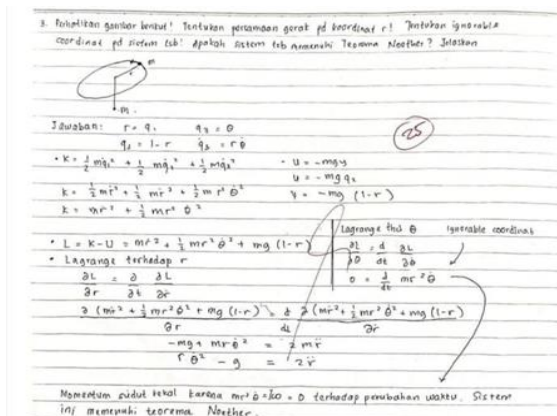 3. Perhatikan gambar berikut! Tentukan persamaan gerak pd koordinat r! Tentukan ignorable
coordinat pd sistem tsb! Apakah sistem tsb memenuhi Teorema Noether? Jelaskan
m
r
m
Jawaban: r = q₁ q₃ = θ
q₂ = l - r q̇₃ = rθ̇
25
• K = ½ mq̇₁² + ½ mq̇₂² + ½ mq̇₃² • U = -mgy
K = ½ mṙ² + ½ mṙ² + ½ mr² θ̇² U = -mg q₂
K = mṙ² + ½ mr² θ̇² U = -mg (l-r)
• L = K-U = mṙ² + ½ mr² θ̇² + mg (l-r)
• Lagrange terhadap r
∂L/∂r = ∂/∂t ∂L/∂ṙ
∂(mṙ² + ½ mr² θ̇² + mg (l-r))/∂r = d/dt ∂(mṙ² + ½ mr² θ̇² + mg (l-r))/∂ṙ
-mg + mrθ̇² = 2mr̈
rθ̇² - g = 2r̈
Lagrange thd θ ignorable coordinat
∂L/∂θ = d/dt ∂L/∂θ̇
0 = d/dt mr²θ̇
Momentum sudut kekal karena mr² θ̇ = 0 terhadap perubahan waktu. Sistem
ini memenuhi teorema Noether.